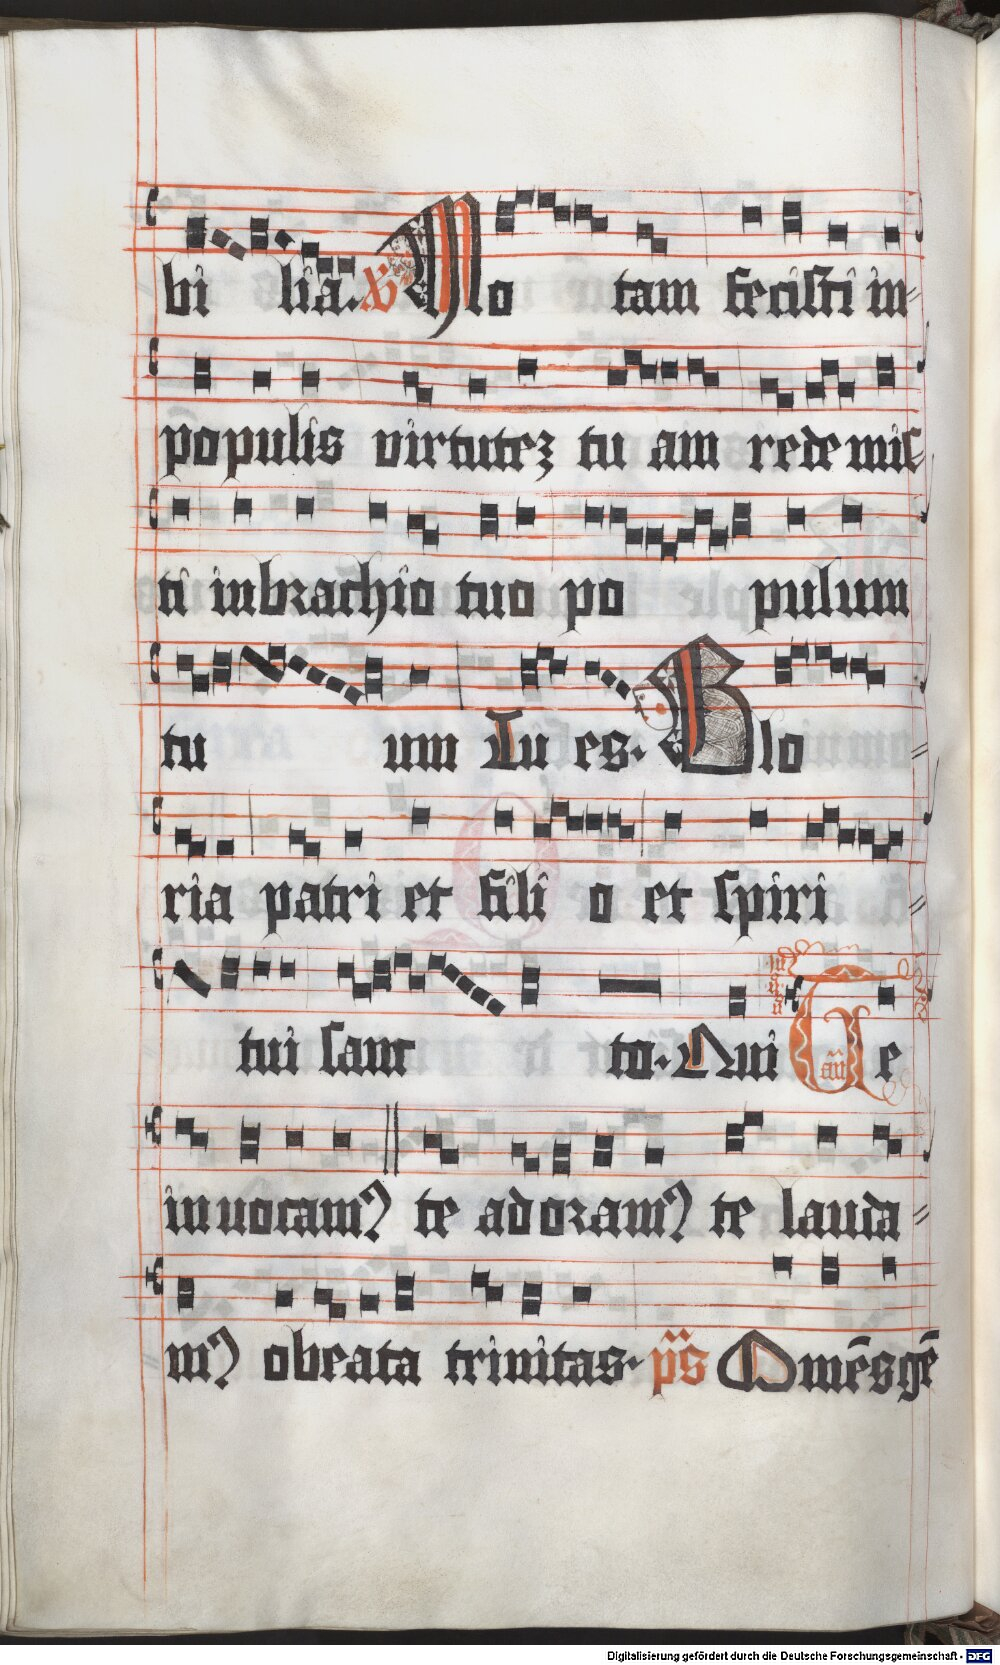 bi lia. ℣ No tam fecisti in
populis virtutez tu am redemis
ti inbrachio tuo po pulum
tu um Tu es. Glo
ria patri et fili o et spiri
tui sanc to. Qui Te
añ
inuocamꝰ te adoramꝰ te lauda
mꝰ obeata trinitas. p̄s Omēs gē
Digitalisierung gefördert durch die Deutsche Forschungsgemeinschaft - DFG